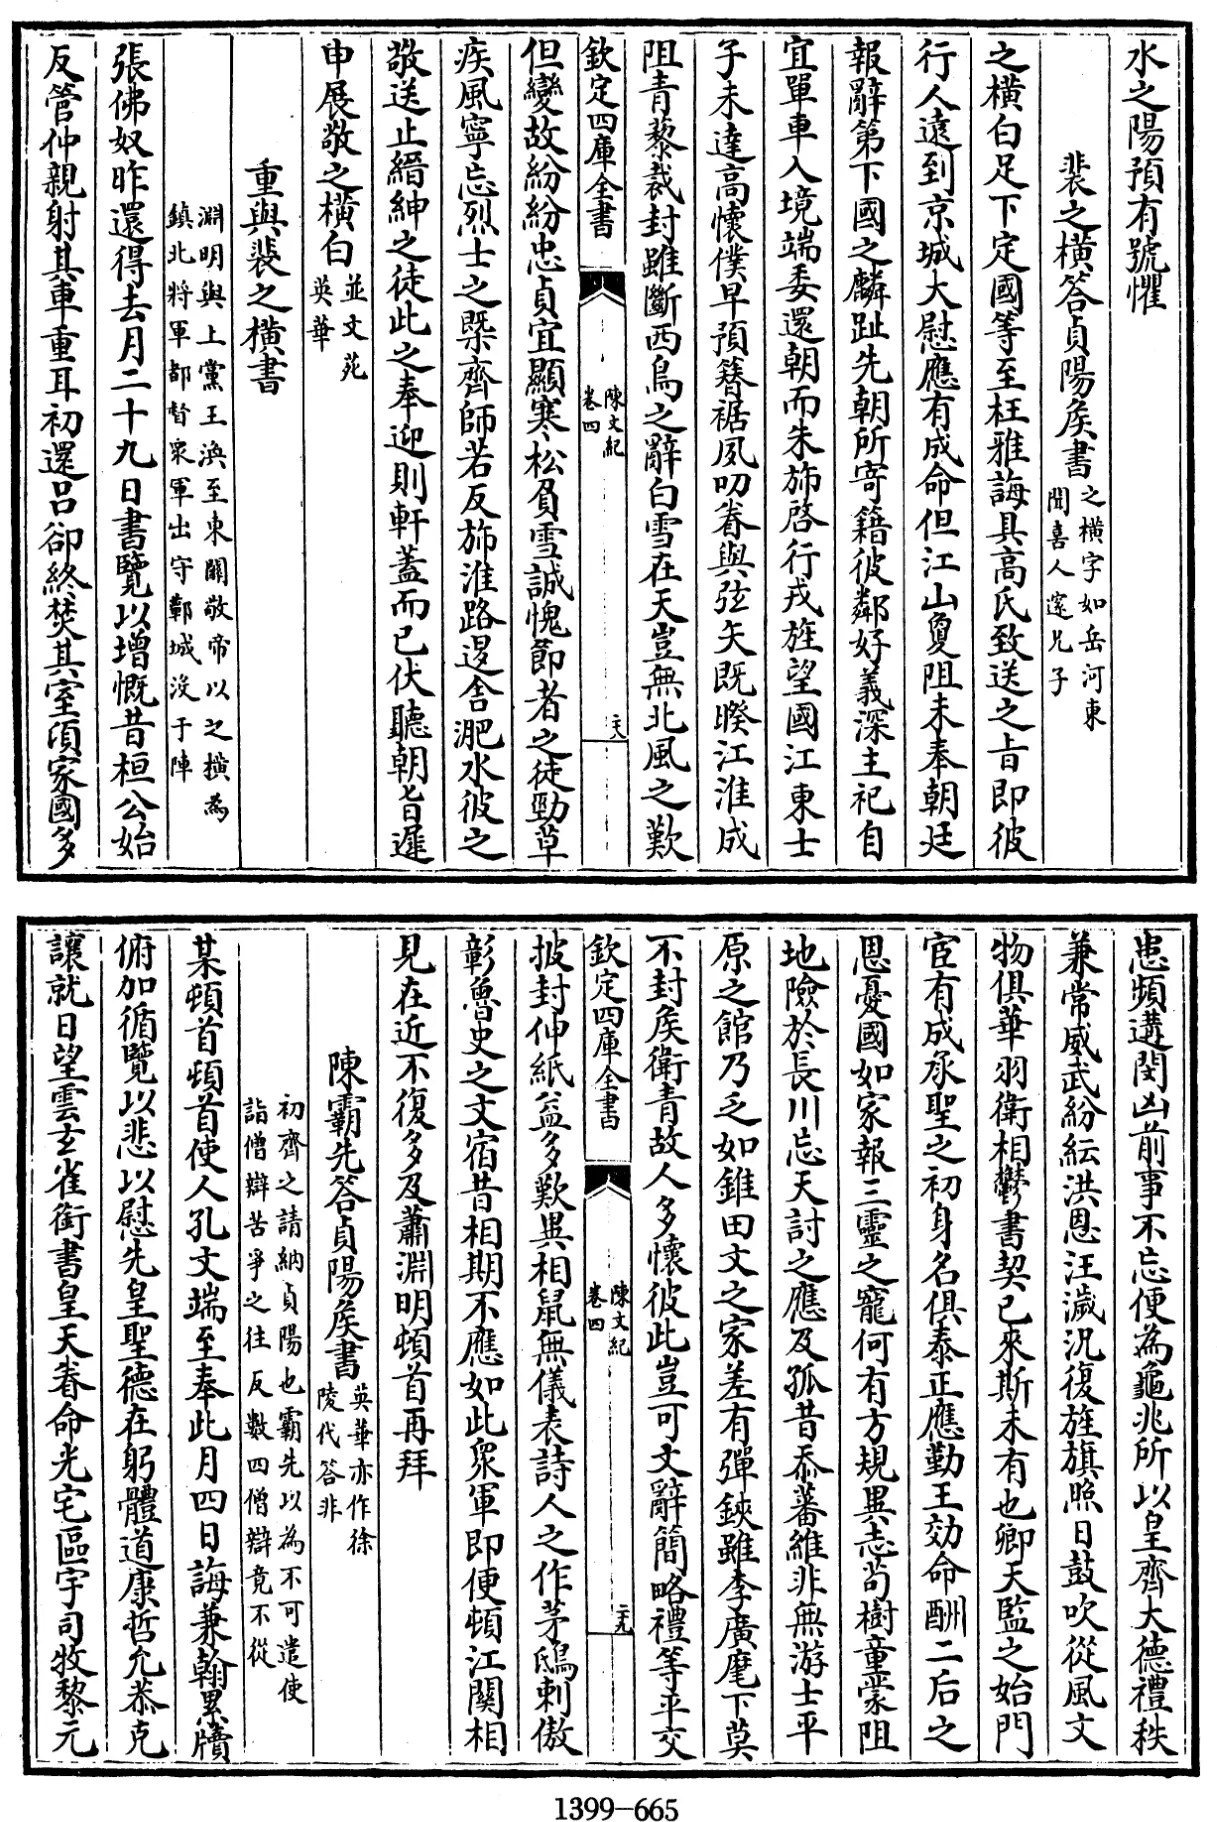 水之陽預有號懼
裴之橫答貞陽侯書
之橫字如岳河東
聞喜人邃兄子
之橫白足下定國等至枉雅誨具高氏致送之㫖即彼
行人遠到京城大慰應有成命但江山夐阻未奉朝廷
報辭第下國之麟趾先朝所寄籍彼鄰好義深主祀自
宜單車入境端委還朝而朱斾啓行戎旌望國江東士
子未達高懷僕早預簪裾夙叨眷與弦矢既暌江淮成
阻青藜裁封雖斷西鳥之辭白雪在天豈無北風之歎
欽定四庫全書
陳文紀
卷四
二十八
但變故紛紛忠貞宜顯寒松負雪誠愧節者之徒勁草
疾風寧忘烈士之槩齊師若反斾淮路逞舍淝水彼之
敬送止縉紳之徒此之奉迎則軒蓋而已伏聽朝㫖遲
申展敬之橫白
並文苑
英華
重與裴之橫書
淵明與上黨王渙至東闗敬帝以之橫為
鎮北將軍都督衆軍出守鄿城沒于陣
張佛奴昨還得去月二十九日書覽以增慨昔桓公始
反管仲親射其車重耳初還呂卻終焚其室頃家國多
患頻遘閔凶前事不忘便為龜兆所以皇齊大德禮秩
兼常威武紛紜洪恩汪濊況復旌旗照日鼓吹從風文
物俱華羽衛相鬱書契已來斯未有也卿天監之始門
宦有成承聖之初身名俱泰正應勤王効命酬二后之
恩憂國如家報三靈之寵何有方規異志苟樹童蒙阻
地險於長川忘天討之應及孤昔忝蕃維非無游士平
原之館乃乏如錐田文之家差有彈鋏雖李廣麾下莫
不封侯衛青故人多懷彼此豈可文辭簡略禮等平交
欽定四庫全書
陳文紀
卷四
二十九
披封伸紙益多歎異相鼠無儀表詩人之作茅鴟刺傲
彰魯史之文宿昔相期不應如此衆軍即便頓江闗相
見在近不復多及蕭淵明頓首再拜
陳霸先答貞陽侯書
英華亦作徐
陵代答非
初齊之請納貞陽也霸先以為不可遣使
詣僧辯苦爭之往反數四僧辯竟不從
某頓首頓首使人孔文端至奉此月四日誨兼翰累牘
俯加循覽以悲以慰先皇聖德在躬體道康哲允恭克
讓就日望雲玄雀銜書皇天眷命光宅區宇司牧黎元
1399-665